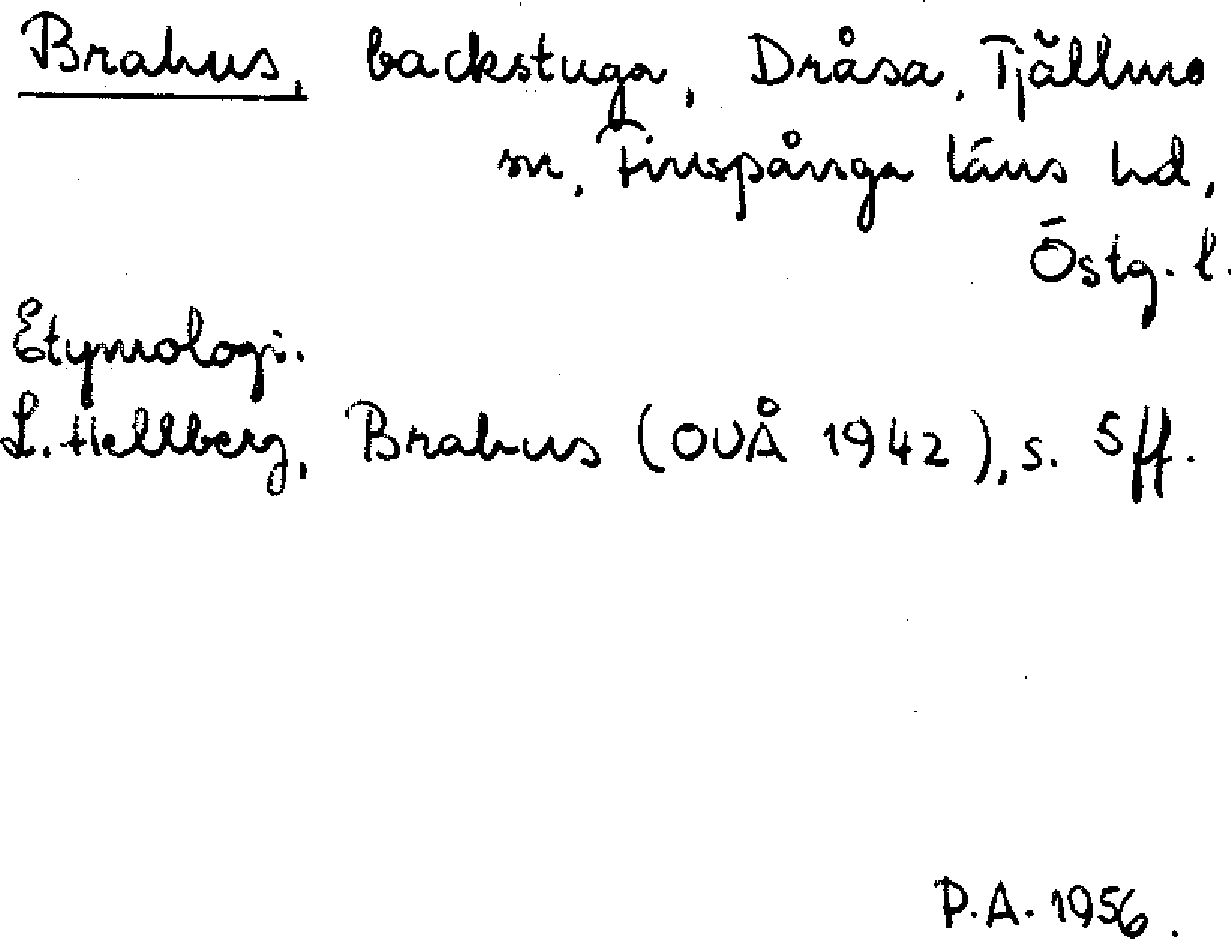 Brahus, backstuga, Dråsa, Tjällmo
sn, Finspånga läns hd,
Östg. l.
Etymologi.
L. Hellberg, Brahus (OUÅ 1942), s. 5 ff.
P.A. 1956.